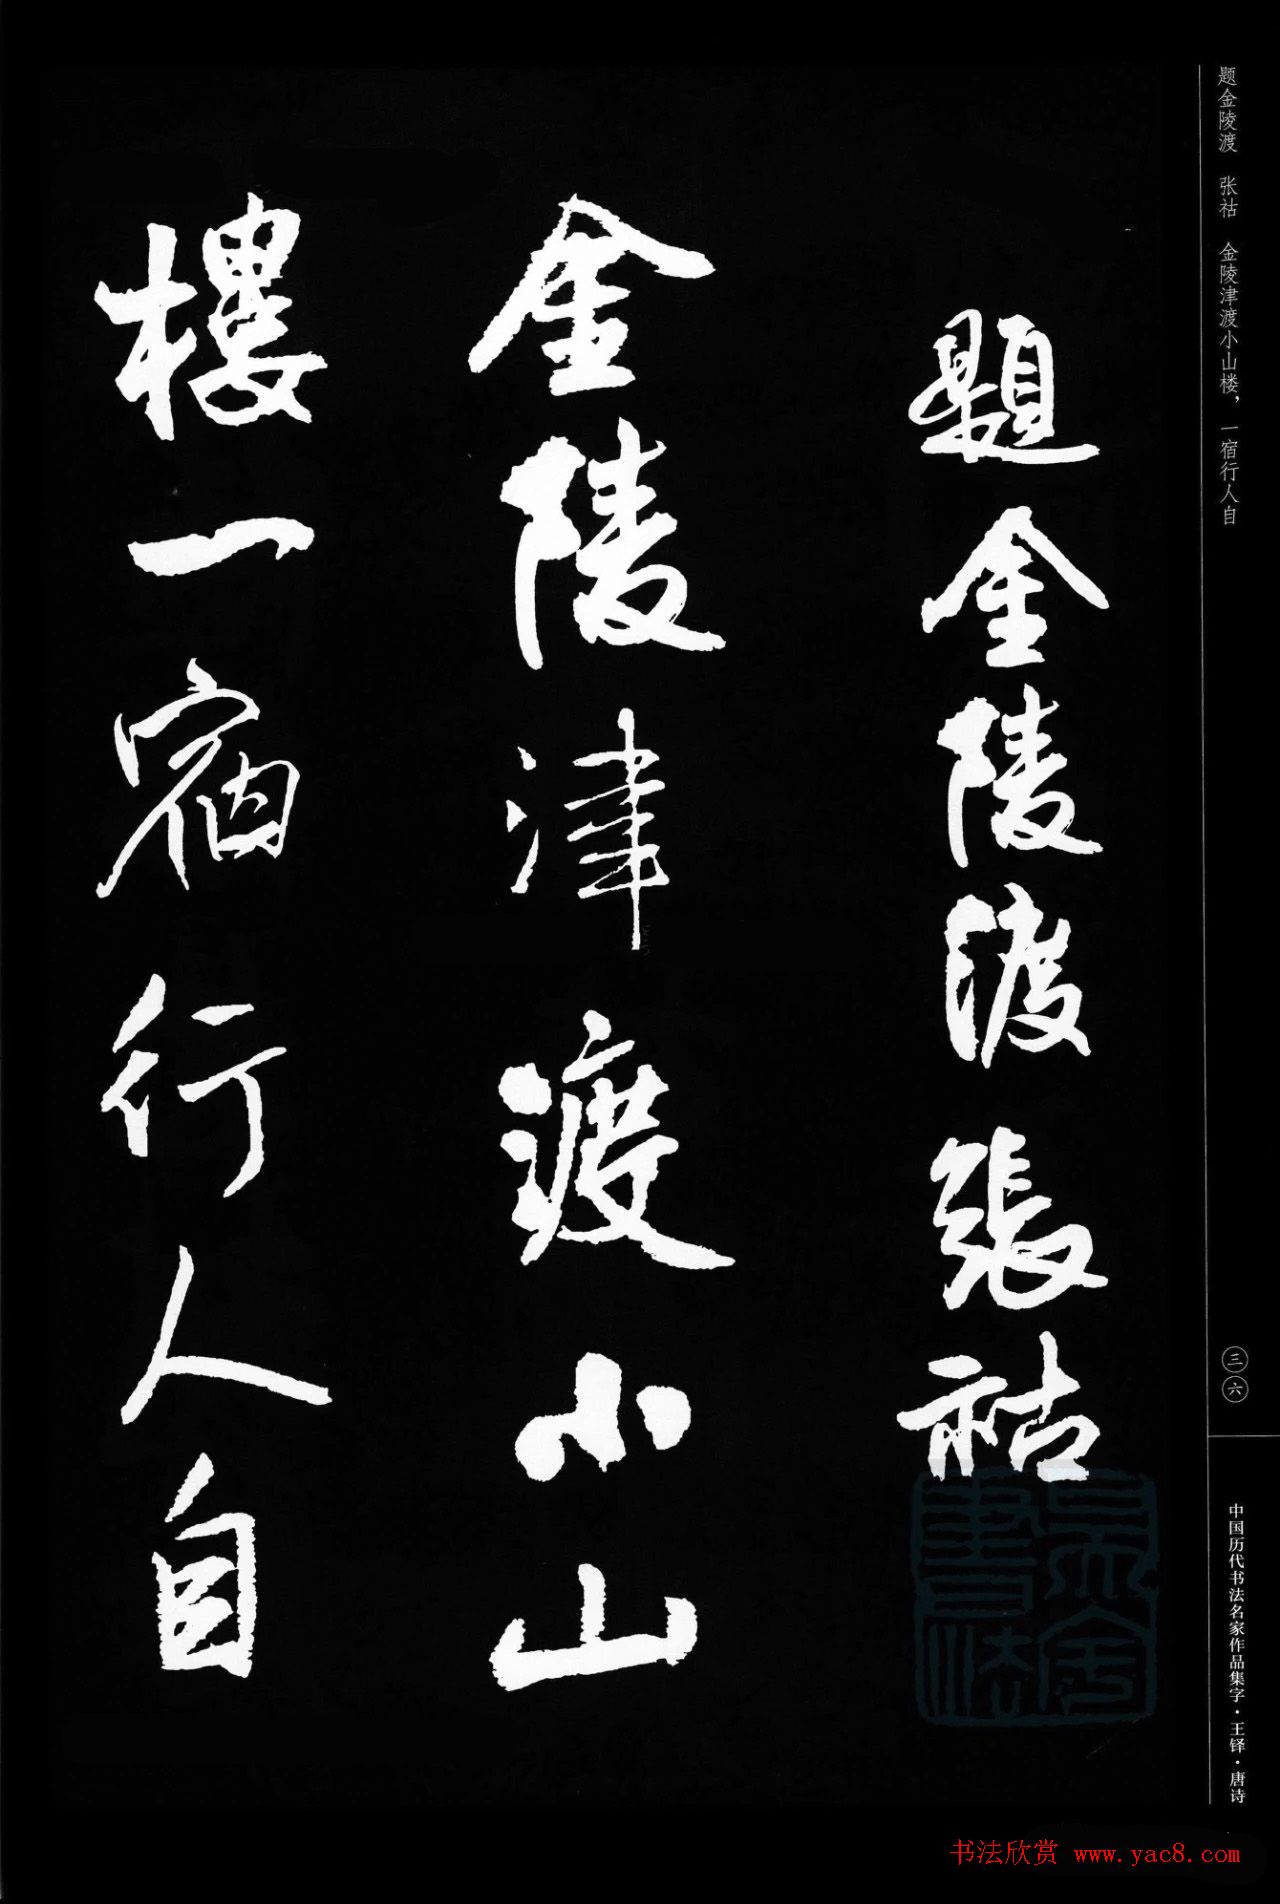 題金陵渡張祜
金陵津渡小山
樓一宿行人自
题金陵渡　张祜　金陵津渡小山楼，一宿行人自
三六
中国历代书法名家作品集字·王铎·唐诗
书法欣赏 www.yac8.com